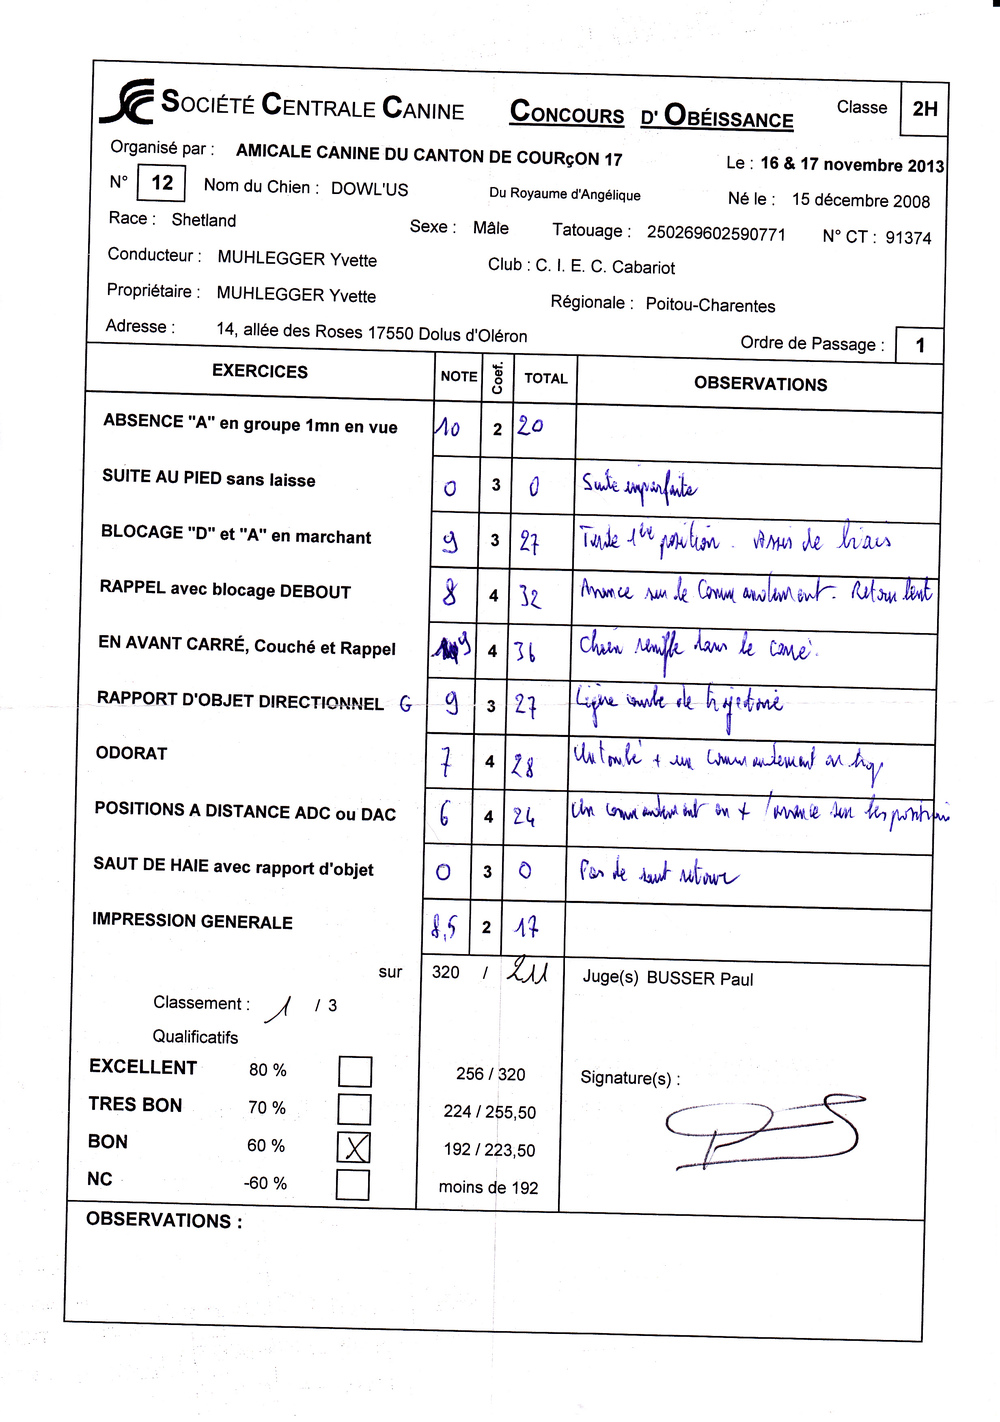 SOCIÉTÉ CENTRALE CANINE CONCOURS D' OBÉISSANCE Classe 2H
Organisé par : AMICALE CANINE DU CANTON DE COURçON 17 Le : 16 & 17 novembre 2013
N° 12 Nom du Chien : DOWL'US Du Royaume d'Angélique Né le : 15 décembre 2008
Race : Shetland Sexe : Mâle Tatouage : 250269602590771 N° CT : 91374
Conducteur : MUHLEGGER Yvette Club : C. I. E. C. Cabariot
Propriétaire : MUHLEGGER Yvette Régionale : Poitou-Charentes
Adresse : 14, allée des Roses 17550 Dolus d'Oléron Ordre de Passage : 1
EXERCICES NOTE Coef. TOTAL OBSERVATIONS
ABSENCE "A" en groupe 1mn en vue 10 2 20
SUITE AU PIED sans laisse 0 3 0 Suite imparfaite
BLOCAGE "D" et "A" en marchant 9 3 27 1ère position. Assis de biais
RAPPEL avec blocage DEBOUT 8 4 32 Avance sur le Commandement. Retour lent
EN AVANT CARRÉ, Couché et Rappel 9 4 36 Chien renifle dans le carré.
RAPPORT D'OBJET DIRECTIONNEL G 9 3 27 Ligne courbe de trajectoire
ODORAT 7 4 28 Un tombé + un commandement en trop
POSITIONS A DISTANCE ADC ou DAC 6 4 24 Un commandement en + / avance sur les positions
SAUT DE HAIE avec rapport d'objet 0 3 0 Pas de saut retour
IMPRESSION GENERALE 8,5 2 17
sur 320 / 211 Juge(s) BUSSER Paul
Classement : 1 / 3
Qualificatifs
EXCELLENT 80 % 256 / 320 Signature(s) :
TRES BON 70 % 224 / 255,50
BON 60 % X 192 / 223,50
NC -60 % moins de 192
OBSERVATIONS :